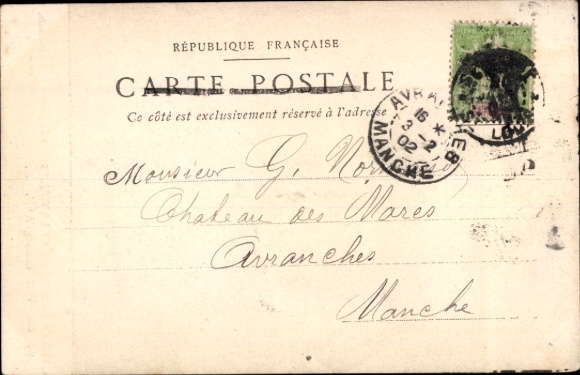 RÉPUBLIQUE FRANÇAISE
CARTE POSTALE
Ce côté est exclusivement réservé à l'adresse
AVRANCHES
16
3 -2
02
MANCHE
Monsieur G.
Chateau des Mares
Avranches
Manche